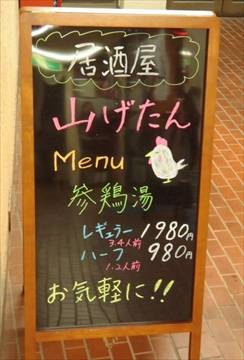 居酒屋
山げたん
Menu
参鶏湯
レギュラー 1980円
3.4人前
ハーフ 980円
1.2人前
お気軽に!!